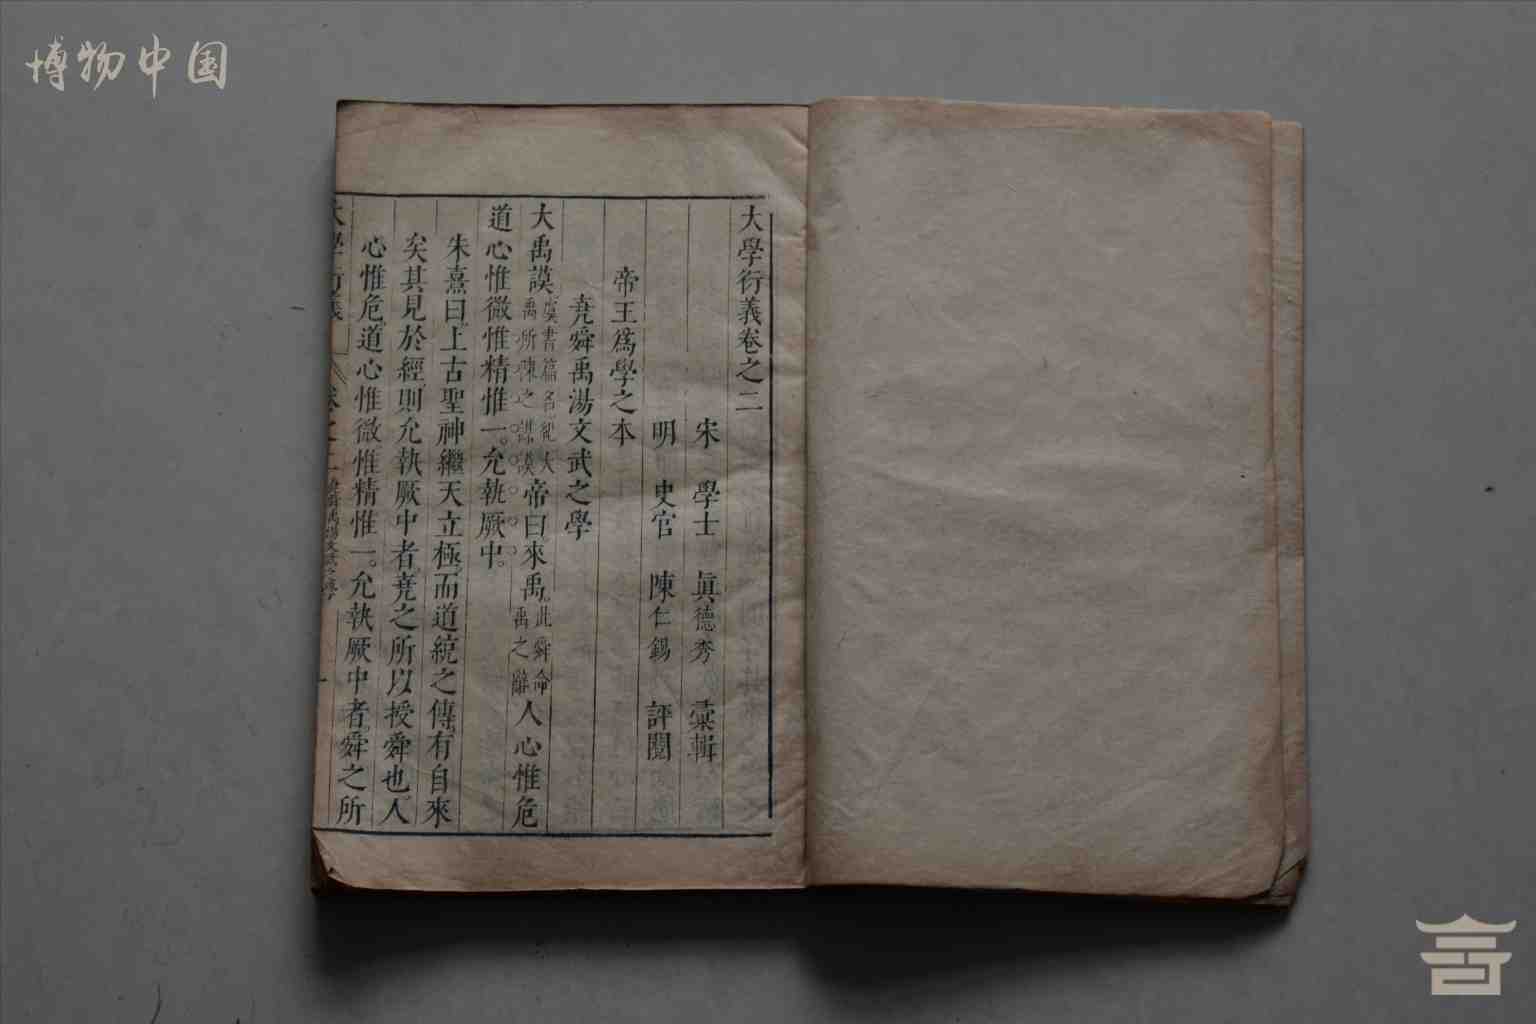 博物中国
大學衍義卷之二
宋 學士 眞德秀 彚輯
明 史官 陳仁錫 評閱
帝王爲學之本
堯舜禹湯文武之學
大禹謨虞書篇名紀大禹所陳之謀謨帝曰來禹此舜命禹之辭人心惟危
道心惟微惟精惟一。允執厥中。
朱熹曰上古聖神繼天立極而道統之傳有自來
矣其見於經則允執厥中者堯之所以授舜也人
心惟危道心惟微惟精惟一。允執厥中者舜之所